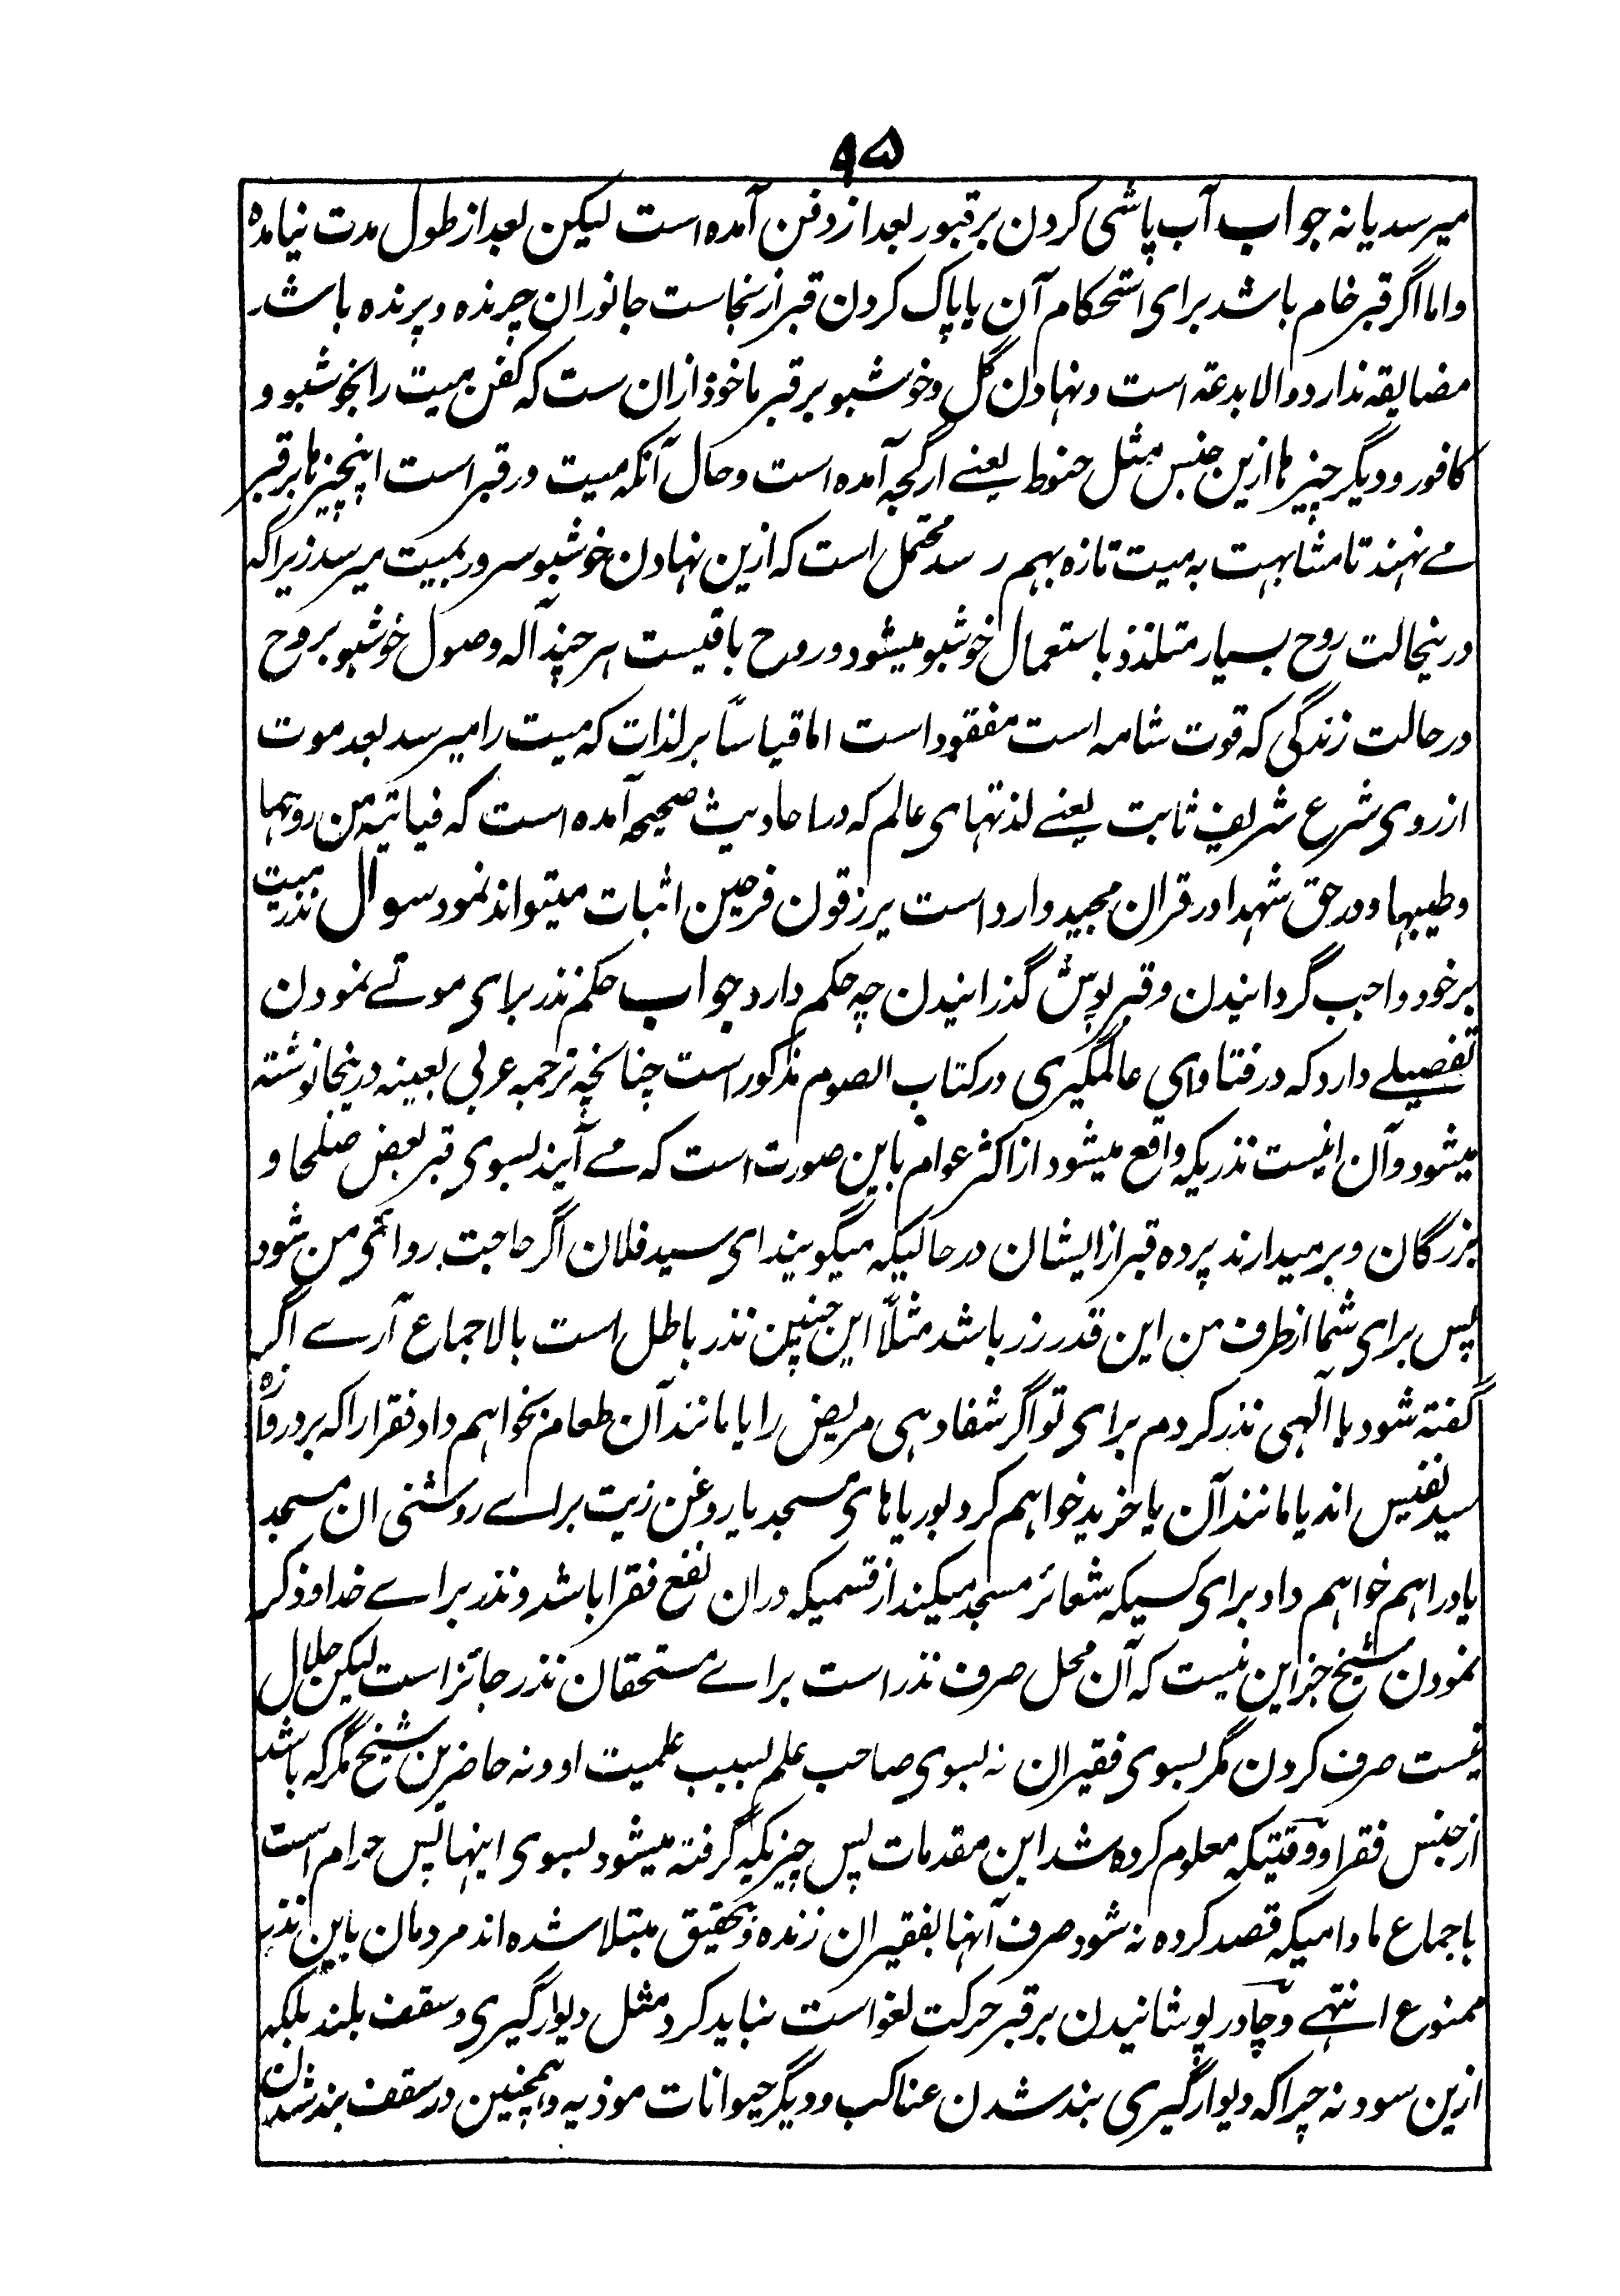 ٩۵
میرسد یا نه جواب آب پاشی کردن بر قبور بعد از دفن آمده است لیکن بعد از طول مدت نیامده
و اما اگر قبر خام باشد برای استحکام آن یا پاک کردن قبر از نجاست جانوران چرنده و پرنده باشد
مضایقه ندارد والا بدعة است و نهادن گل و خوشبو بر قبر ماخوذ ازان ست که کفن میت را بخوشبو و
کافور و دیگر چیزها ازین جنس مثل حنوط یعنے ارگجه آمده است و حال آنکه میت در قبر است اینچیزها بر قبر
مے نهند تا مشابهت به میت تازه بهم رسد محتمل است که ازین نهادن خوشبو سرور بمیت میرسد زیراکه
درینحالت روح بسیار متلذذ باستعمال خوشبو میشود و روح باقیست هر چند آله وصول خوشبو بروح
در حالت زندگی که قوت شامه است مفقود است اما قیاسًا بر لذات که میت را میرسد بعد موت
از روی شرع شریف ثابت یعنے لذتهای عالم که در احادیث صحیحه آمده است که فیاتیه من روحها
و طیبها و در حق شهدا در قران مجید وارد است یرزقون فرحین اثبات میتواند نمود سوال نذر میت
بر خود واجب گردانیدن و قبر پوش گذرانیدن چه حکم دارد جواب حکم نذر برای موتے نمودن
تفصیلے دارد که در فتاوای عالمگیری در کتاب الصوم مذکور است چنانچه ترجمه عربی بعینه درینجا نوشته
میشود و آن اینست نذریکه واقع میشود از اکثر عوام باین صورت است که مے آیند بسوی قبر بعض صلحا و
بزرگان و بر میدارند پرده قبر از ایشان در حالیکه میگویند ای سید فلان اگر حاجت روائی من شود
پس برای شما از طرف من این قدر زر باشد مثلًا این چنین نذر باطل است بالاجماع آرے اگر
گفته شود یا الٰهی نذر کردم برای تو اگر شفا دهی مریض را یا مانند آن طعام بخواهم داد فقرا را که بر دروازه
سید نفیس اند یا مانند آن یا خرید خواهم کرد بوریاهای مسجد یا روغن زیت براے روشنی ان مسجد
یا دراهم خواهم داد برای کسیکه شعائر مسجد میکند از قسمیکه دران نفع فقرا باشد و نذر براے خدا و ذکر
نمودن شیخ جز این نیست که آن محل صرف نذر است براے مستحقان نذر جائز است لیکن حلال
نیست صرف کردن مگر بسوی فقیران نه بسوی صاحب علم بسبب علمیت او و نه حاضرین شیخ مگر که باشد
از جنس فقرا و وقتیکه معلوم کرده شد این مقدمات پس چیزیکه گرفته میشود بسوی اینها پس حرام است
باجماع مادامیکه قصد کرده نه شود صرف آنها بفقیران زنده و بتحقیق مبتلا شده اند مردمان باین نذر
ممنوع انتهے و چادر پوشانیدن بر قبر حرکت لغو است نباید کرد مثل دیوارگیری و سقف بلند بلکه
ازین سود نه چراکه دیوارگیری بند شدن عناکب و دیگر حیوانات موذیه و همچنین در سقف بند شدن